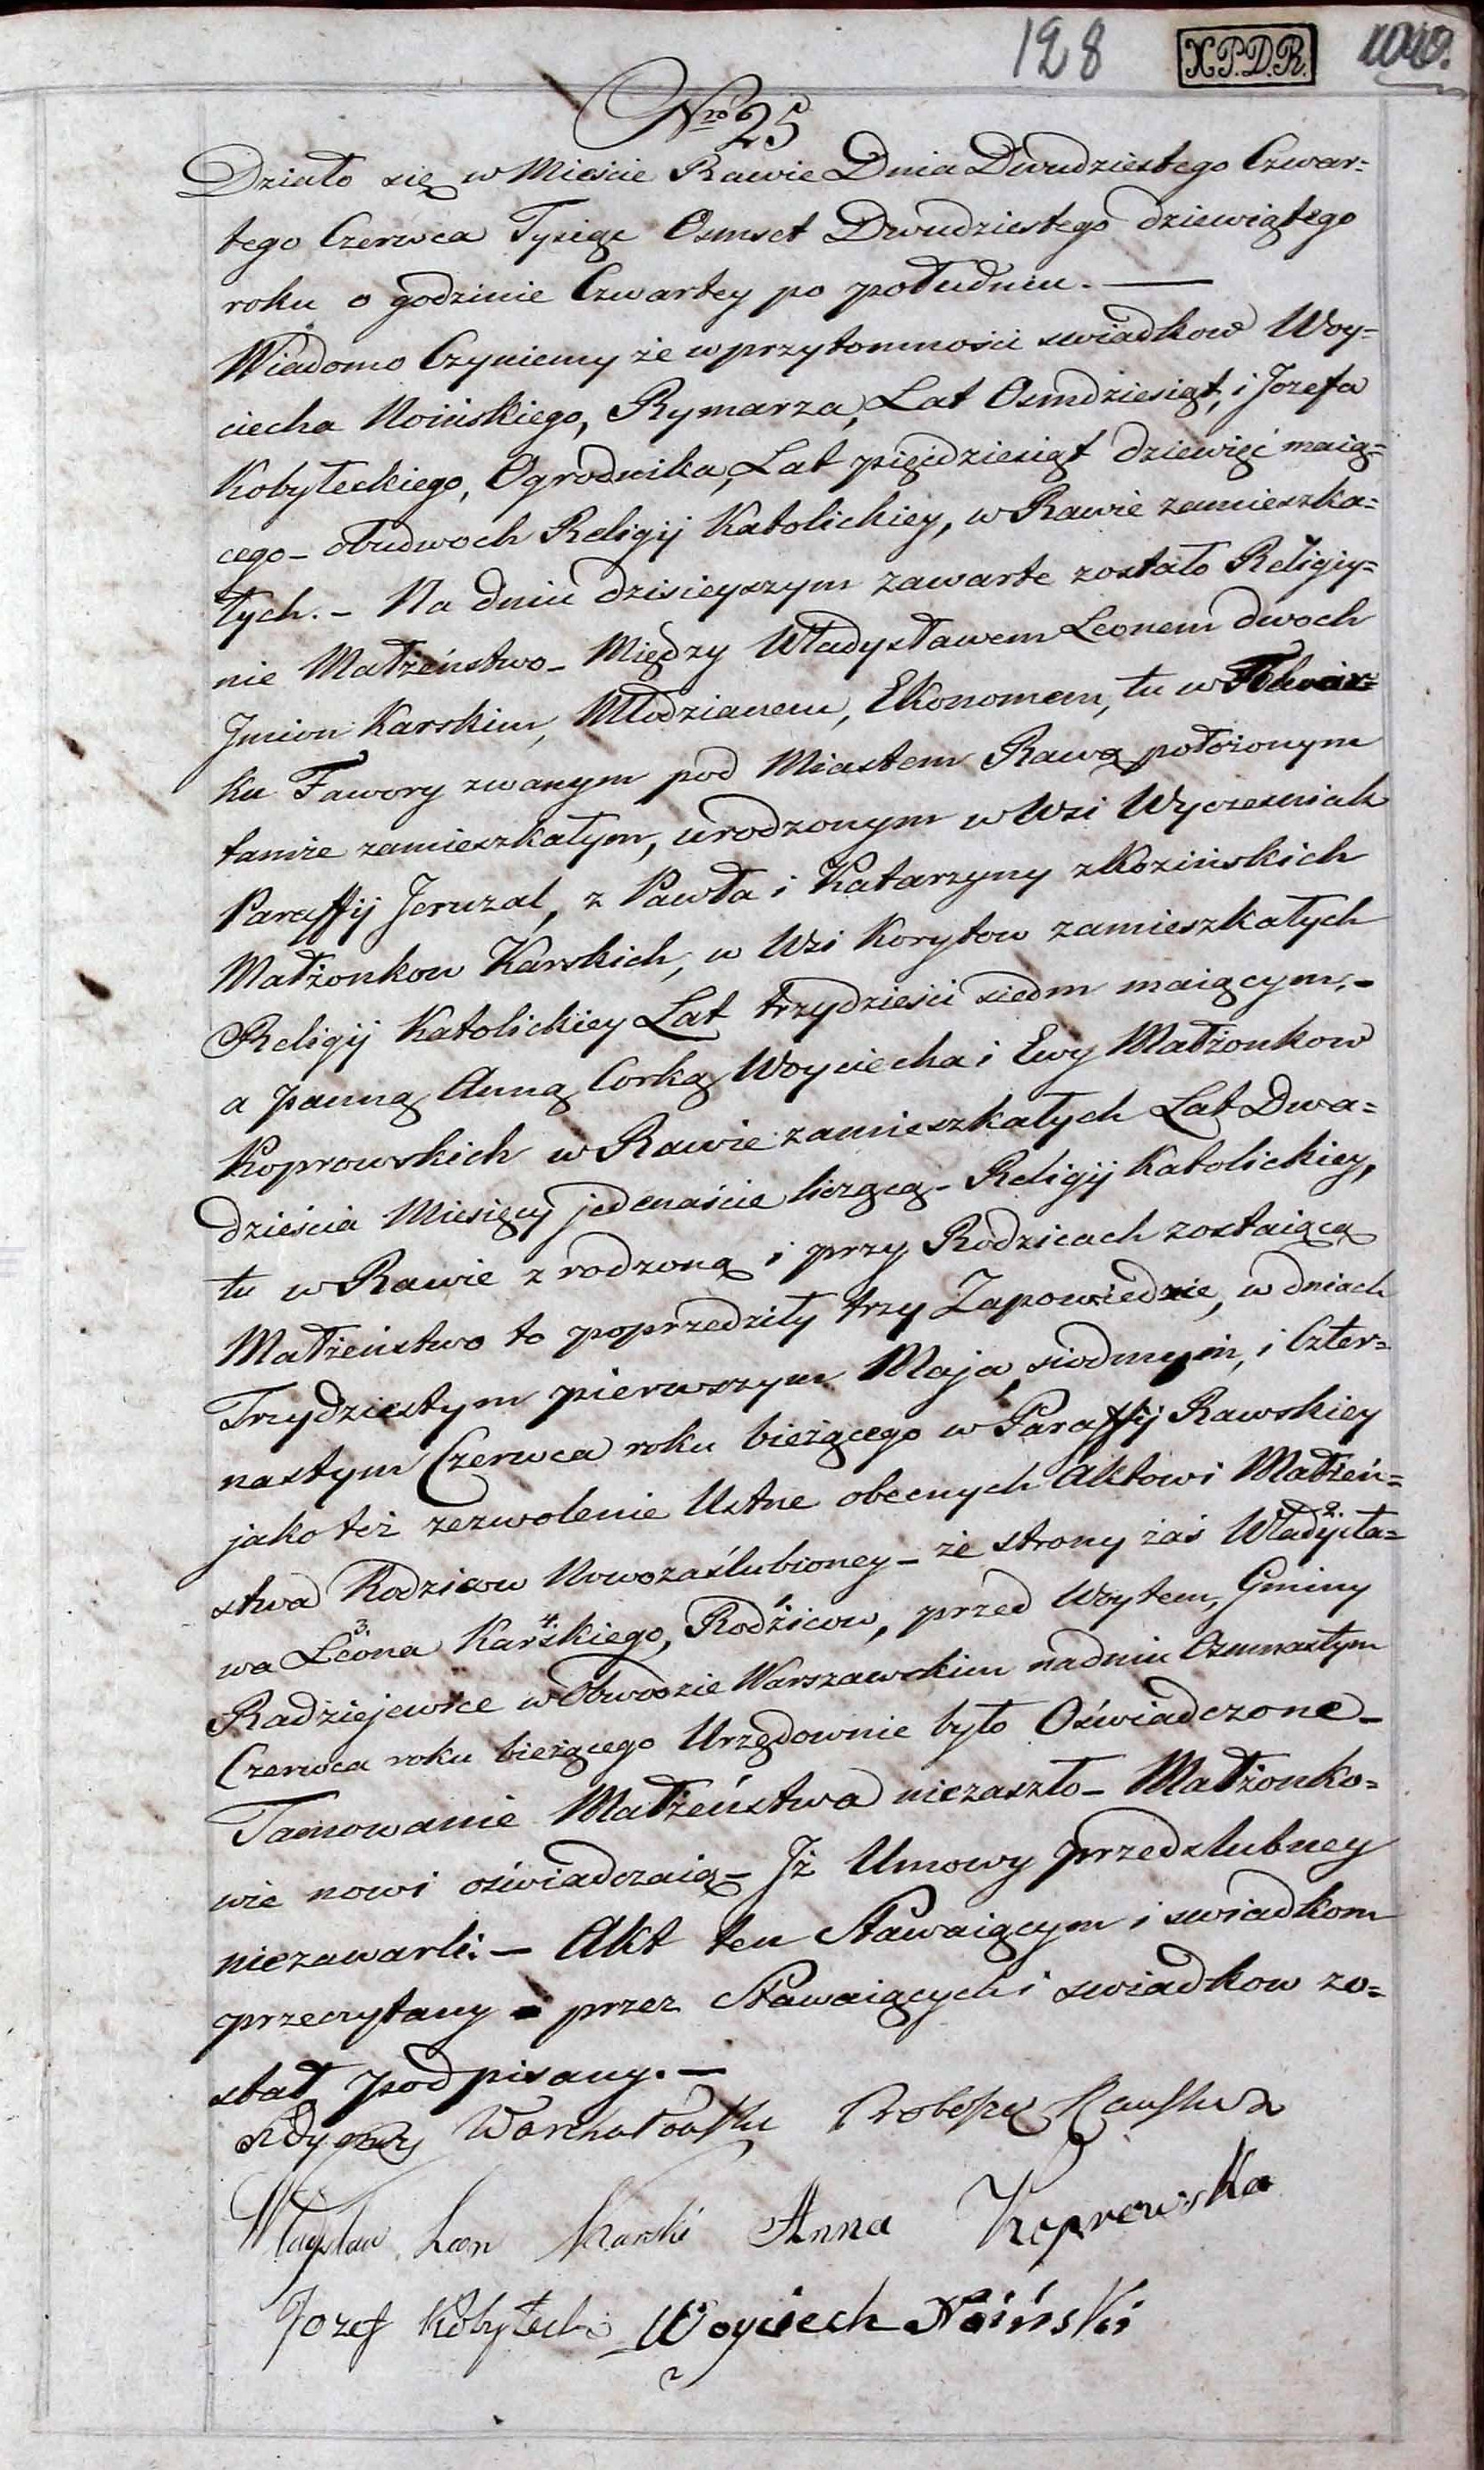 128 X.P.D.R.
Nro 25
Działo się w Mieście Rawie Dnia Dwudziestego Czwar=
tego Czerwca Tysiąc Osmset Dwudziestego dziewiątego
roku o godzinie Czwartey po południu. —
Wiadomo Czyniemy że w przytomności swiadkow Woy=
ciecha Noińskiego, Rymarza, Lat Osmdziesiąt, i Jozefa
Kobyłeckiego, Ogrodnika, Lat pięćdziesiąt dziewięć maią=
cego – obudwoch Religij Katolickiey, w Rawie zamieszka=
łych. – Na dniu dzisieyszym zawarte zostało Religiy=
nie Małżeństwo – Między Władysławem Leonem dwoch
Jmion Karskim, Młodzianem, Ekonomem, tu w Folwar=
ku Fawory zwanym pod Miastem Rawą położonym
tamże zamieszkałym, urodzonym w Wsi Wycześniak
Paraffij Jeruzal, z Pawła i Katarzyny z Kozińskich
Małżonkow Karskich, w Wsi Korytow zamieszkałych
Religij Katolickiey Lat trzydzieści siedm maiącym, –
a panną Anną Corką Woyciecha i Ewy Małżonkow
Koprowskich w Rawie zamieszkałych Lat Dwa=
dzieścia Miesięcy jedenaście liczącą – Religij Katolickiey,
tu w Rawie zrodzoną i przy Rodzicach zostaiącą
Małżeństwo to poprzedziły trzy Zapowiedzie, w dniach
Trzydziestym pierwszym Maja, siodmym, i Czter=
nastym Czerwca roku bieżącego w Paraffij Rawskiey
jako też zezwolenie Ustne obecnych Aktowi Małżeń=
stwa Rodzicow Nowozaślubioney – ze strony zaś 2. Władysła=
wa 3. Leona 4. Karskiego, 1. Rodzicow, przed Woytem, Gminy
Radziejewice w Obwodzie Warszawskim na dniu Osmnastym
Czerwca roku bieżącego Urzędownie było Oświadczone –
Tamowanie Małżeństwa niezaszło – Małżonko=
wie nowi oświadczaią – Jż Umowy przedslubney
niezawarli. – Akt ten Stawaiącym i swiadkom
przeczytany – przez Stawaiących i swiadkow zo=
stał podpisany. —
Proboszcz
Władysław Leon Karski Anna Koprowska
Jozef Kobyłecki Woyciech Noiński